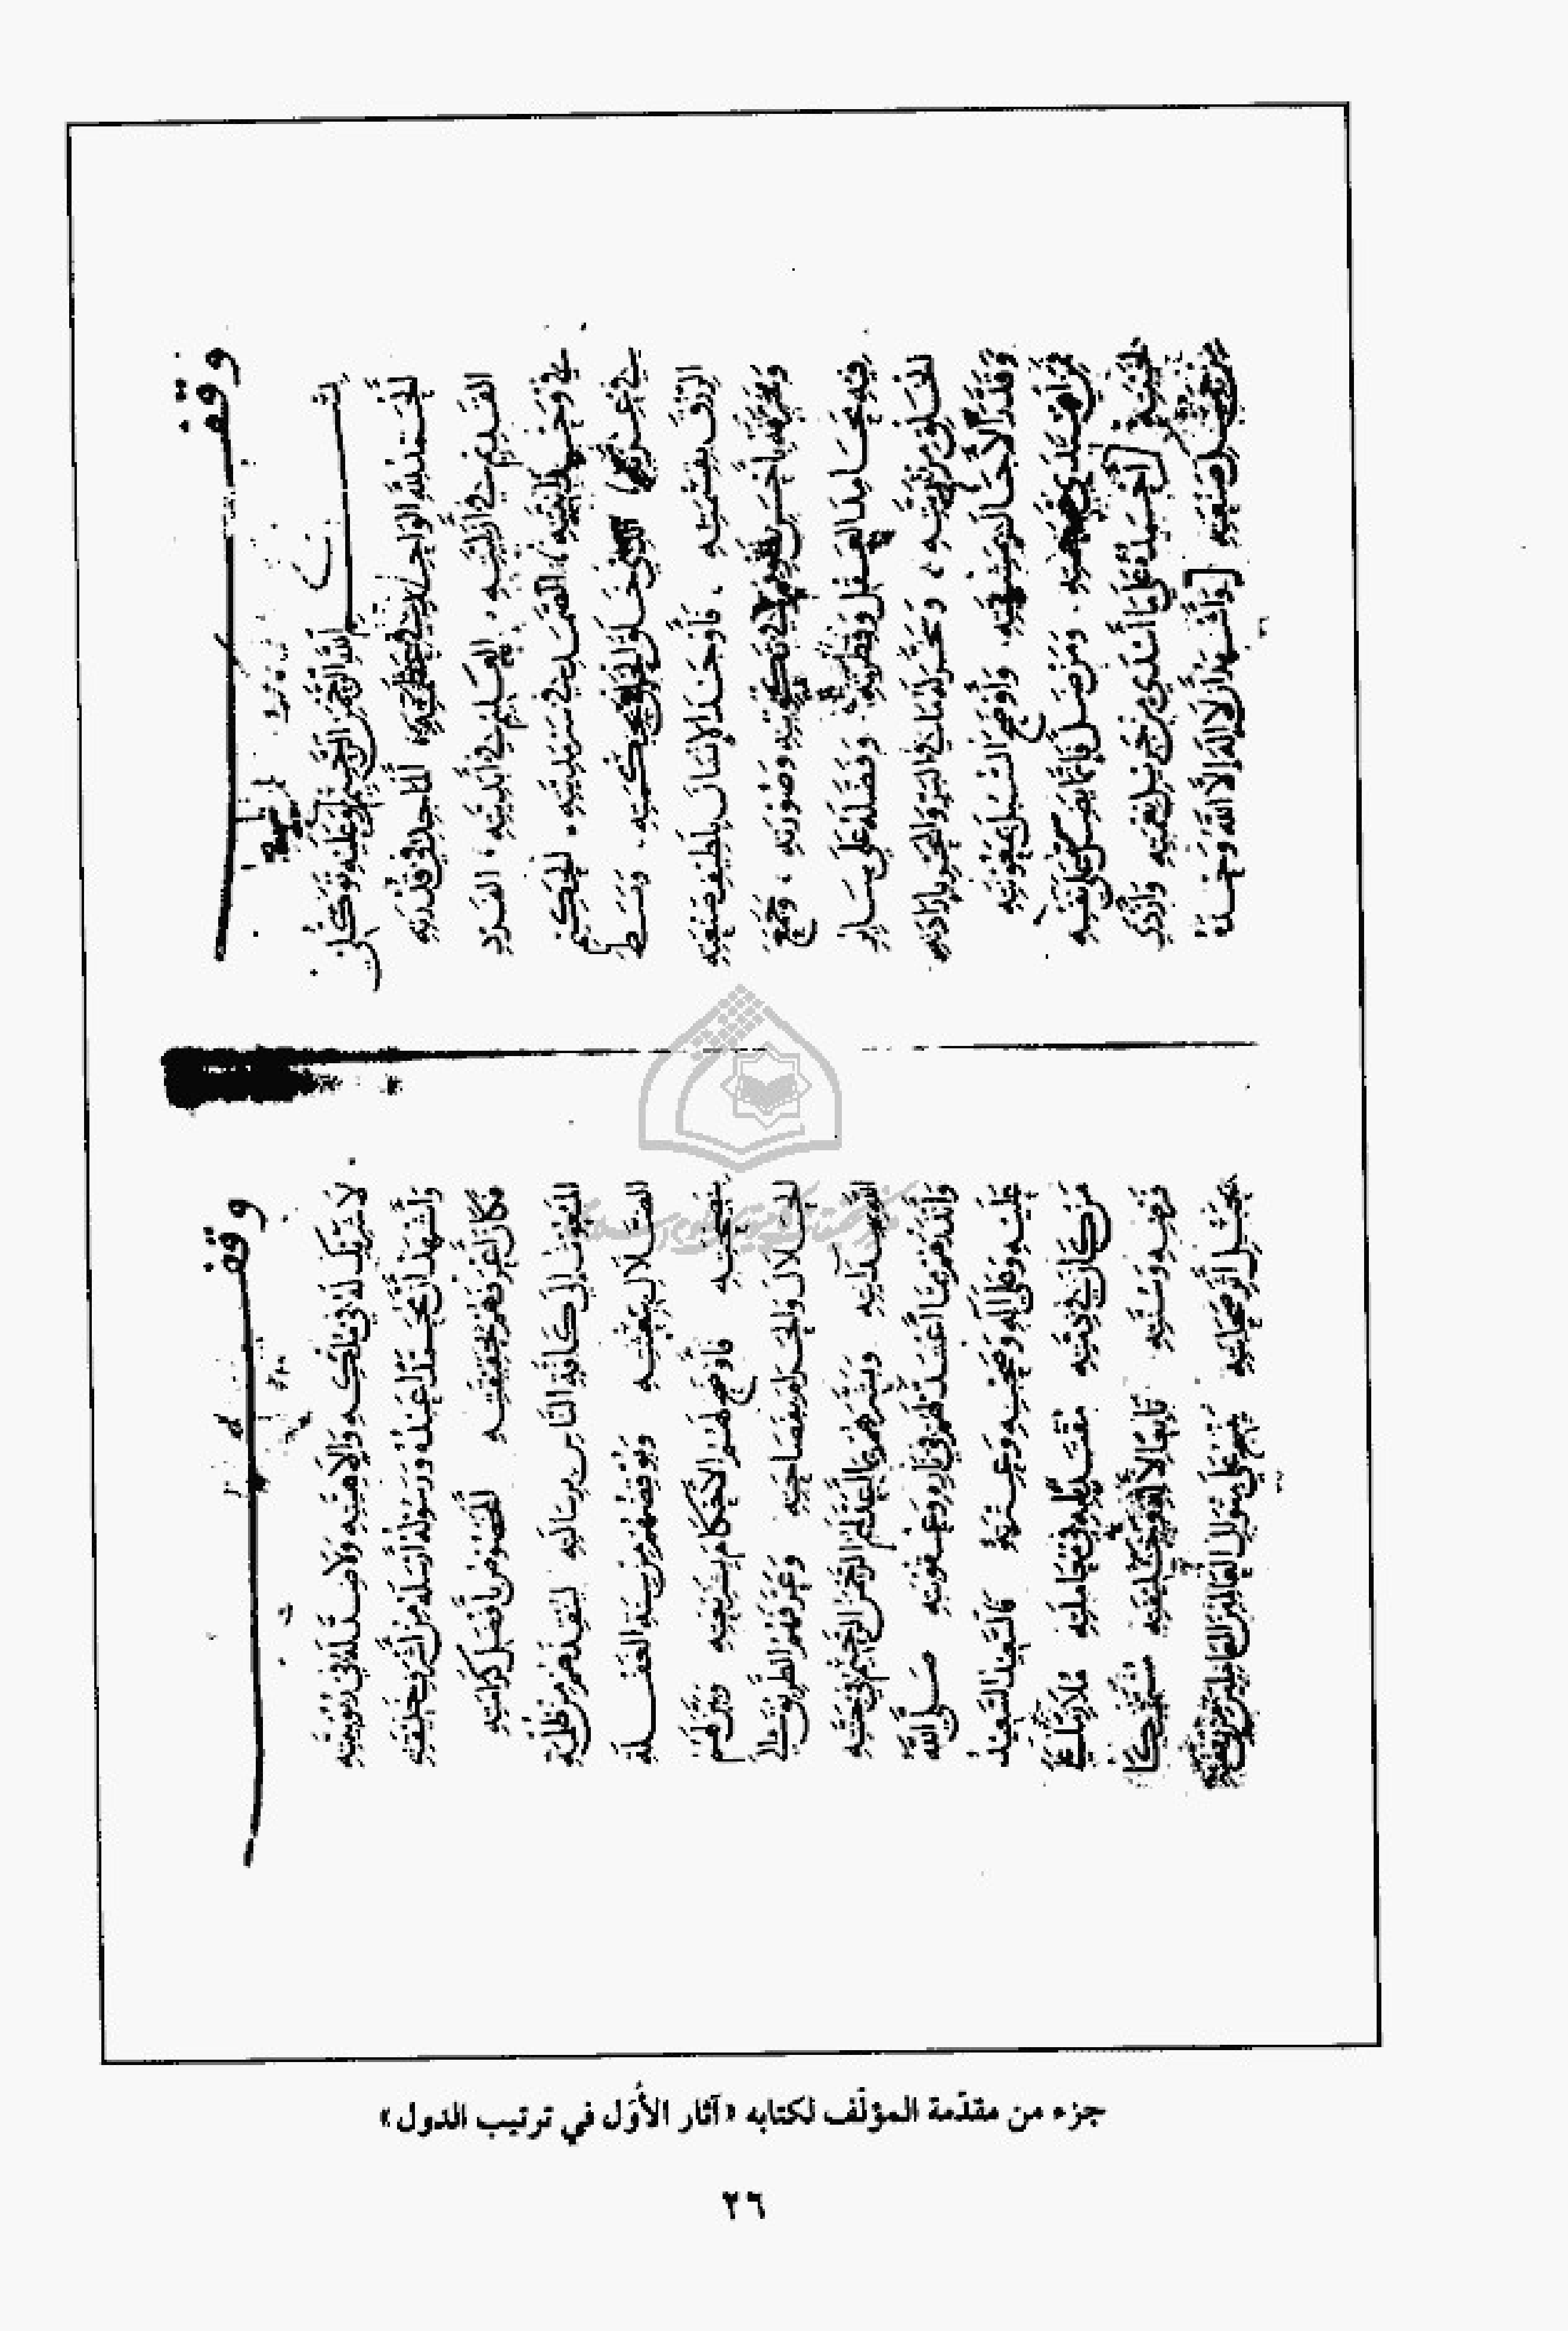 وقف
بسم الله الرحمن الرحيم وعليه توكلت
الحمد لله الواحد في عظمته الماجد في قدرته
القديم في أزليته العليم في أبديته الفرد
في وحدانيته الصمد في سرمديته الحكيم
في عزته الذي خلق الخلق بحكمته وبسط
الرزق بقسمته فأوجد الإنسان بلطيف صنعته
في تكوينه وصورته وجمع
فيه محامد العقل وفطرته وفضله على سائر
الخلق من بريته وسخر له ما في البر والبحر بإرادته
وقدر الآجال بمشيئته وأوضح السبل بمعونته
ومن ضل فإنما يضل على نفسه
أحمده على ما أسدى من جزيل نعمته
وأشهد أن لا إله إلا الله وحده
وقف
لا شريك له في ملكه وإلاهيته ولا ضد له في ربوبيته
وأشهد أن محمدا عبده ورسوله أرسله من أشرف خليقته
فكان أعرفهم بحقيقته المخصوص بأفضل كرامته
المبعوث إلى كافة الناس برسالته لينقذهم من ظلمة
الضلال ببعثته ويوقظهم من سنة الغفلة
بنصيحته فأوضح لهم الأحكام بشريعته وبين لهم
الحلال والحرام بفصاحته وعرفهم الطريق إلى
الله بهدايته وبشرهم بما أعد لهم الرحمن الرحيم في جنته
وأنذرهم بما أعتد لهم في ناره وعقوبته صلى الله
عليه وعلى آله وصحبه وعترته فالسعيد السعيد
من كان في ذمته مقتديا به في معاملته ملازما على
فرضه وسنته تابعا لأمر خليفته متمسكا
بحبل أثر صحابته
جزء من مقدّمة المؤلّف لكتابه «آثار الأُوَل في ترتيب الدول»
٢٦